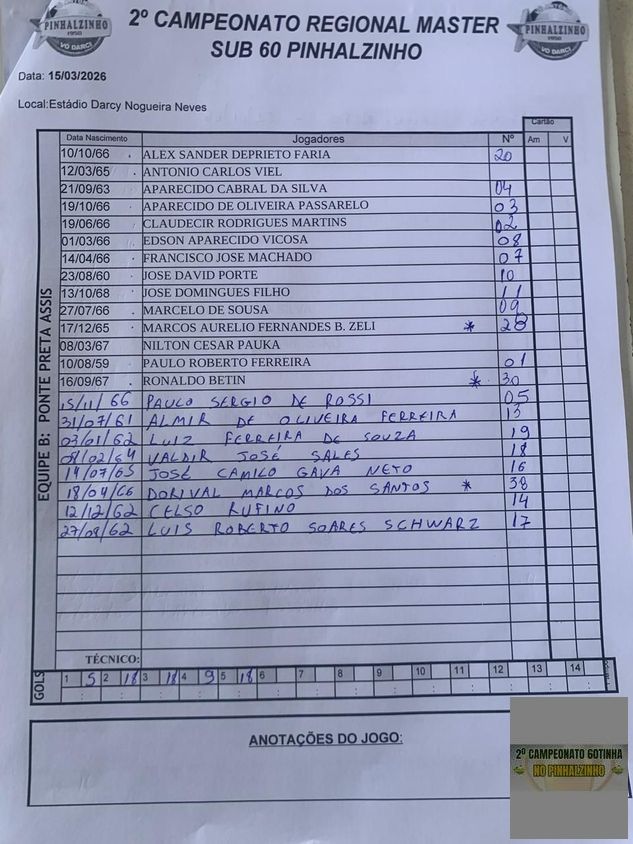 PINHALZINHO
1950
VÔ DARCI
2º CAMPEONATO REGIONAL MASTER
SUB 60 PINHALZINHO
PINHALZINHO
1950
VÔ DARCI
Data: 15/03/2026
Local:Estádio Darcy Nogueira Neves
EQUIPE B: PONTE PRETA ASSIS
Cartão
Data Nascimento Jogadores Nº Am V
10/10/66 ALEX SANDER DEPRIETO FARIA 20
12/03/65 ANTONIO CARLOS VIEL
21/09/63 APARECIDO CABRAL DA SILVA 04
19/10/66 APARECIDO DE OLIVEIRA PASSARELO 03
19/06/66 CLAUDECIR RODRIGUES MARTINS 02
01/03/66 EDSON APARECIDO VICOSA 08
14/04/66 FRANCISCO JOSE MACHADO 07
23/08/60 JOSE DAVID PORTE 10
13/10/68 JOSE DOMINGUES FILHO 11
27/07/66 MARCELO DE SOUSA 09
17/12/65 MARCOS AURELIO FERNANDES B. ZELI * 28
08/03/67 NILTON CESAR PAUKA
10/08/59 PAULO ROBERTO FERREIRA 01
16/09/67 RONALDO BETIN * 30
15/11/66 PAULO SERGIO DE ROSSI 05
31/07/61 ALMIR DE OLIVEIRA FERREIRA 13
03/01/62 LUIZ FERREIRA DE SOUZA 19
08/02/64 VALDIR JOSÉ SALES 18
14/07/65 JOSÉ CAMILO GAVA NETO 16
18/04/66 DORIVAL MARCOS DOS SANTOS * 38
12/12/62 CELSO RUFINO 14
27/08/62 LUIS ROBERTO SOARES SCHWARZ 17
TÉCNICO:
GOLS
1 5 2 18 3 18 4 9 5 18 6 7 8 9 10 11 12 13 14
: : : : : : : : : : : : : :
ANOTAÇÕES DO JOGO:
2º CAMPEONATO 60TINHA
NO PINHALZINHO